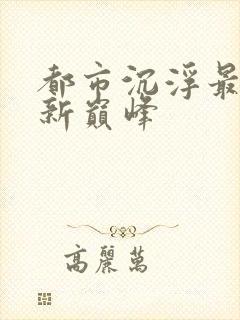 都市沉浮最
新巔峰
高麗萬